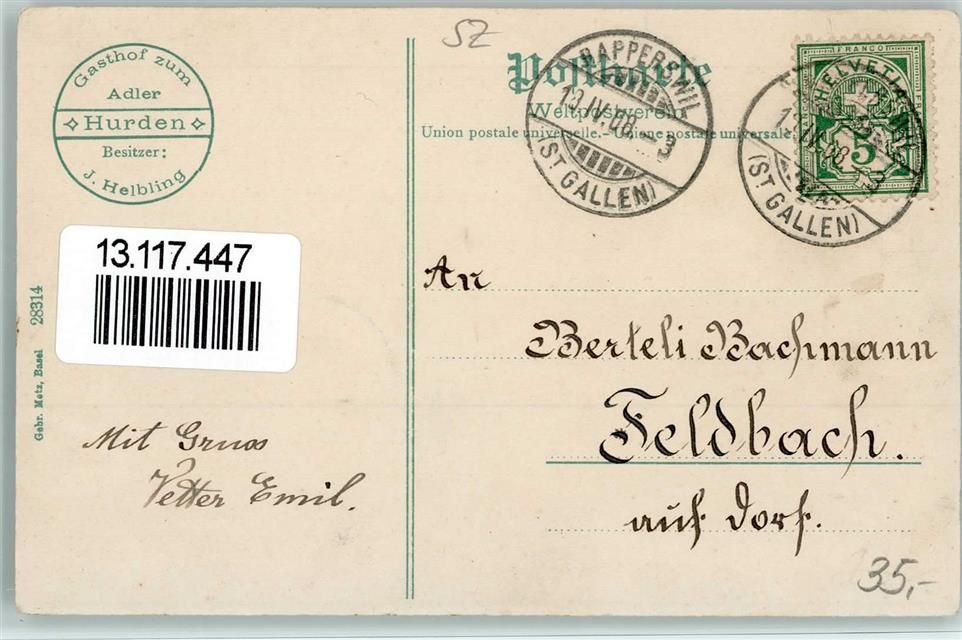 SZ
Gasthof zum
Adler
Hurden
Besitzer:
J. Helbling
Postkarte
Weltpostverein
Union postale universelle. - Unione postale universale
RAPPERSWIL
13.IV.08.-3
(ST GALLEN)
FRANCO
HELVETIA
5
13.IV.08.-3
(ST GALLEN)
13.117.447
Gebr. Metz, Basel 28314
An
Berteli Bachmann
Feldbach.
auf Dorf.
Mit Gruss
Vetter Emil.
35,-